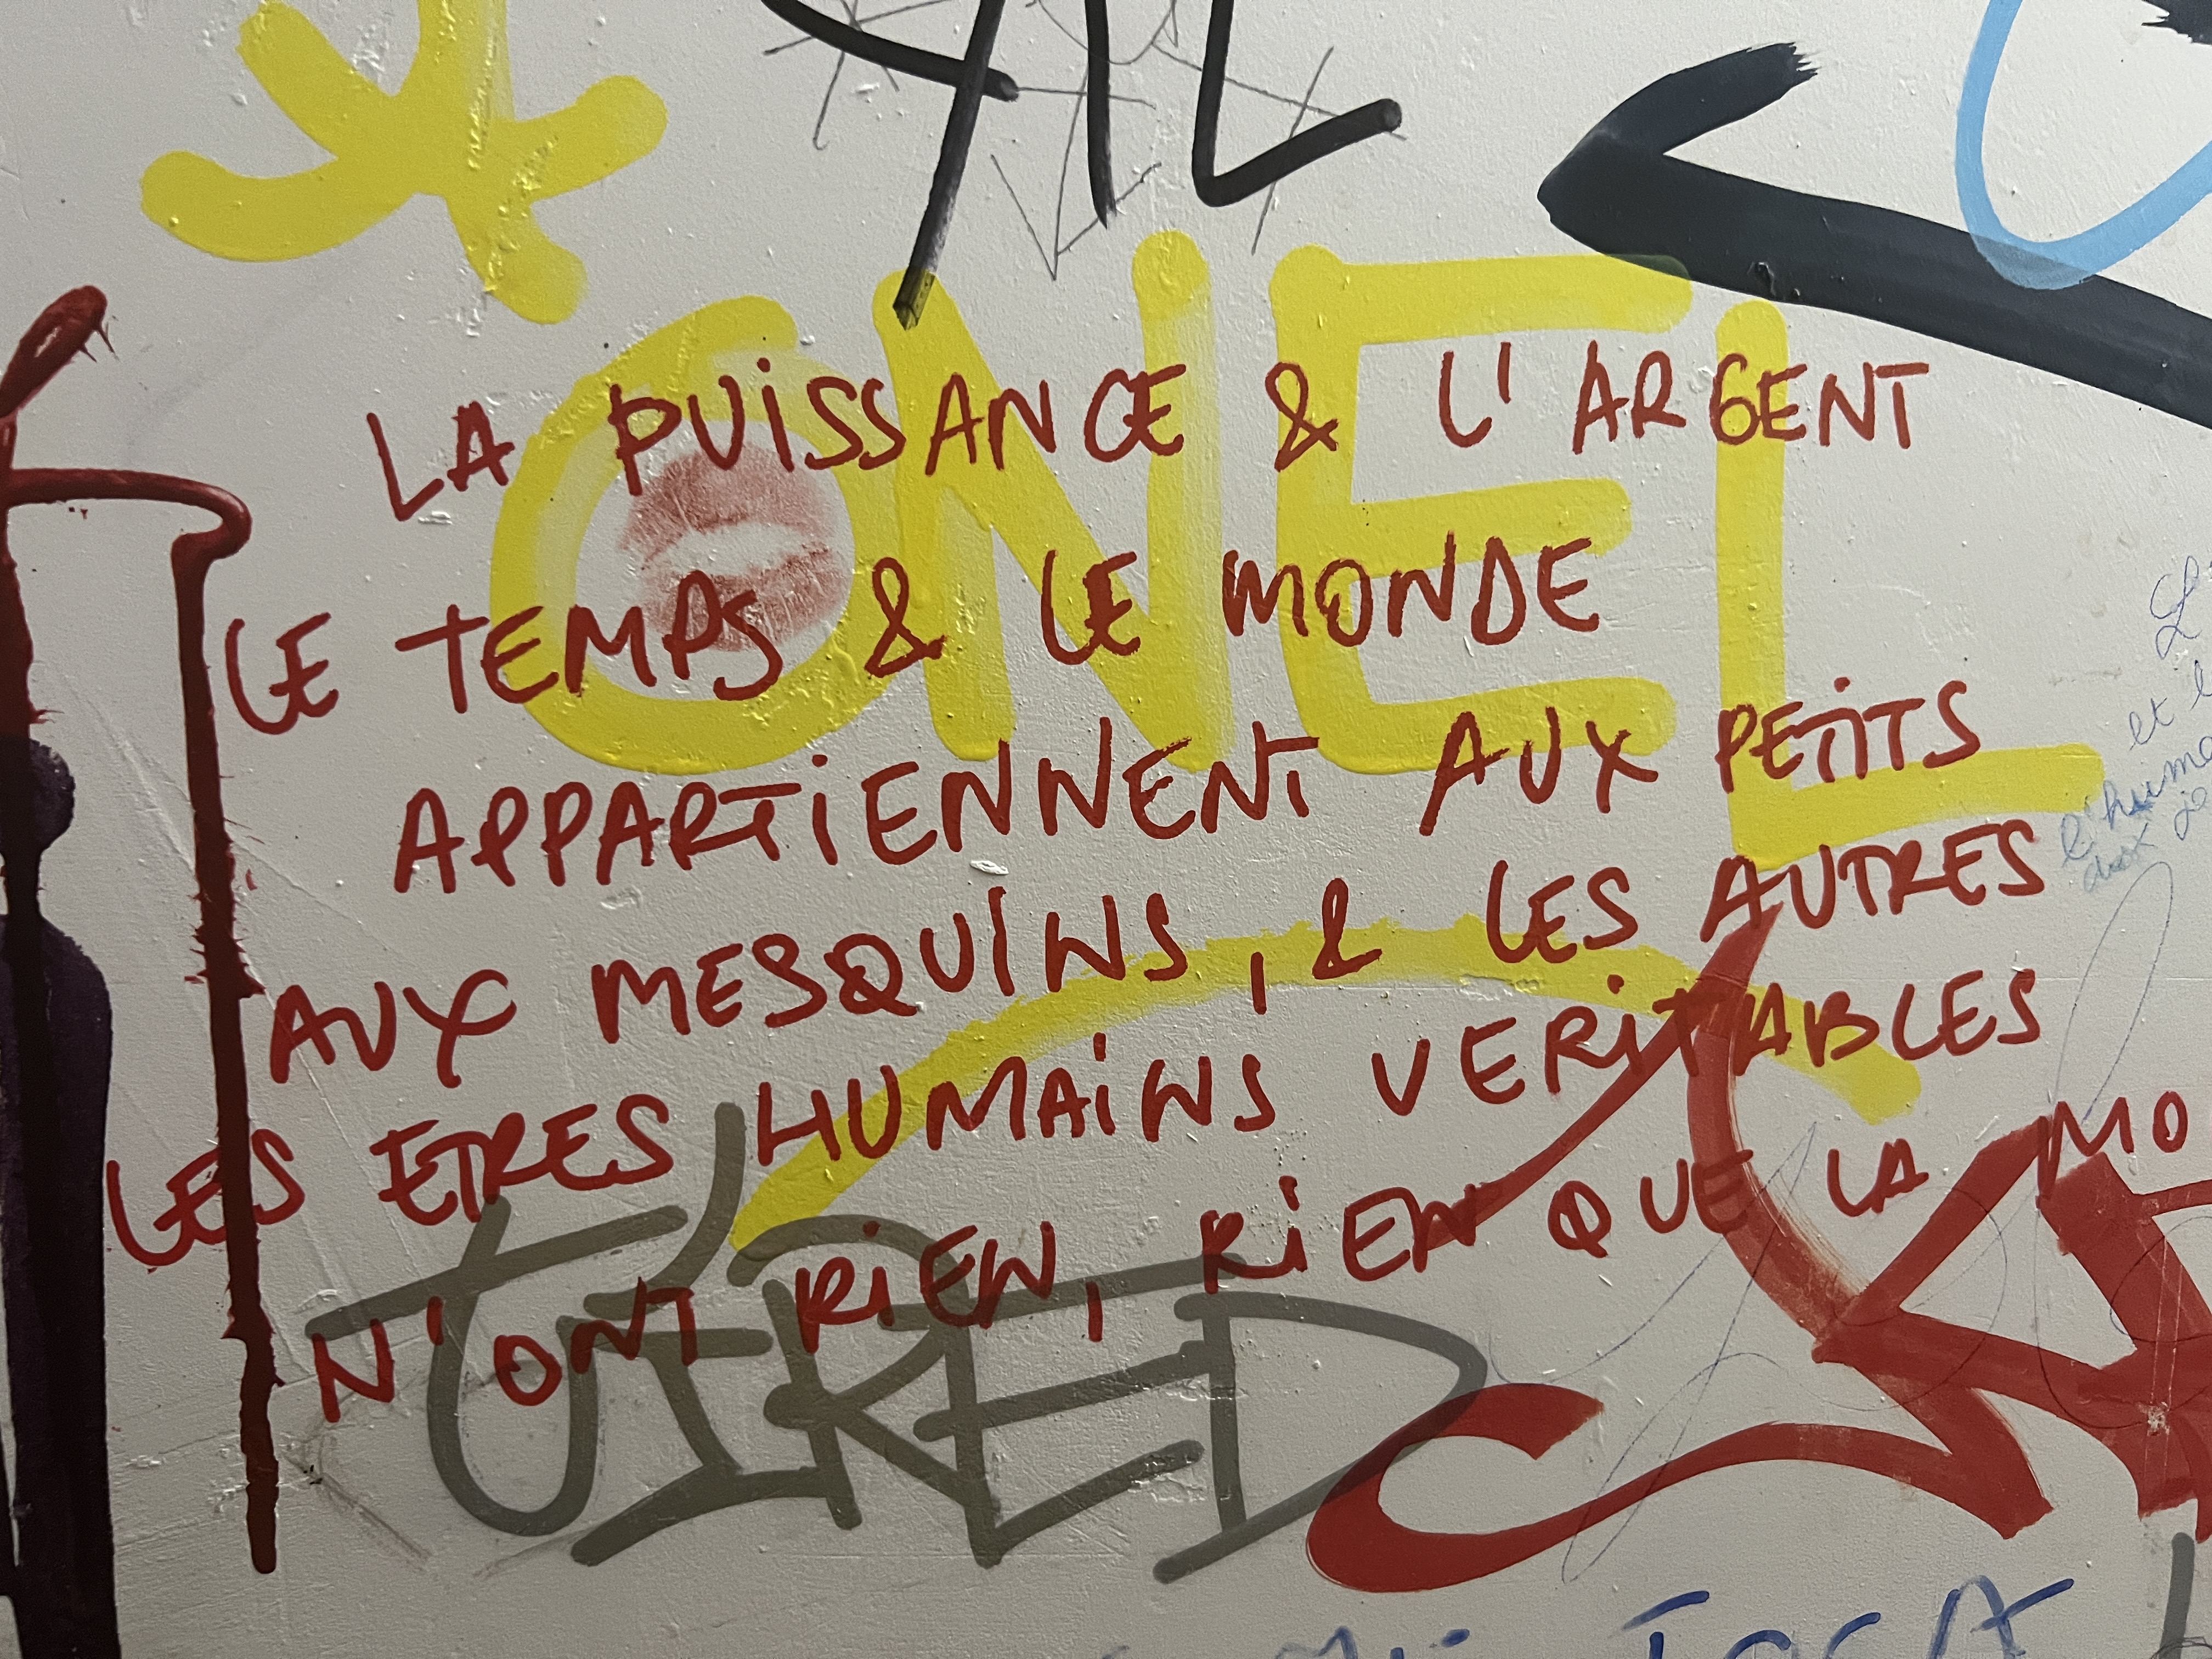 ONE L
LA PUISSANCE & L'ARGENT
LE TEMPS & LE MONDE
APPARTIENNENT AUX PETITS
AUX MESQUINS, & LES AUTRES
LES ETRES HUMAINS VERITABLES
N'ONT RIEN, RIEN QUE LA MO
et l